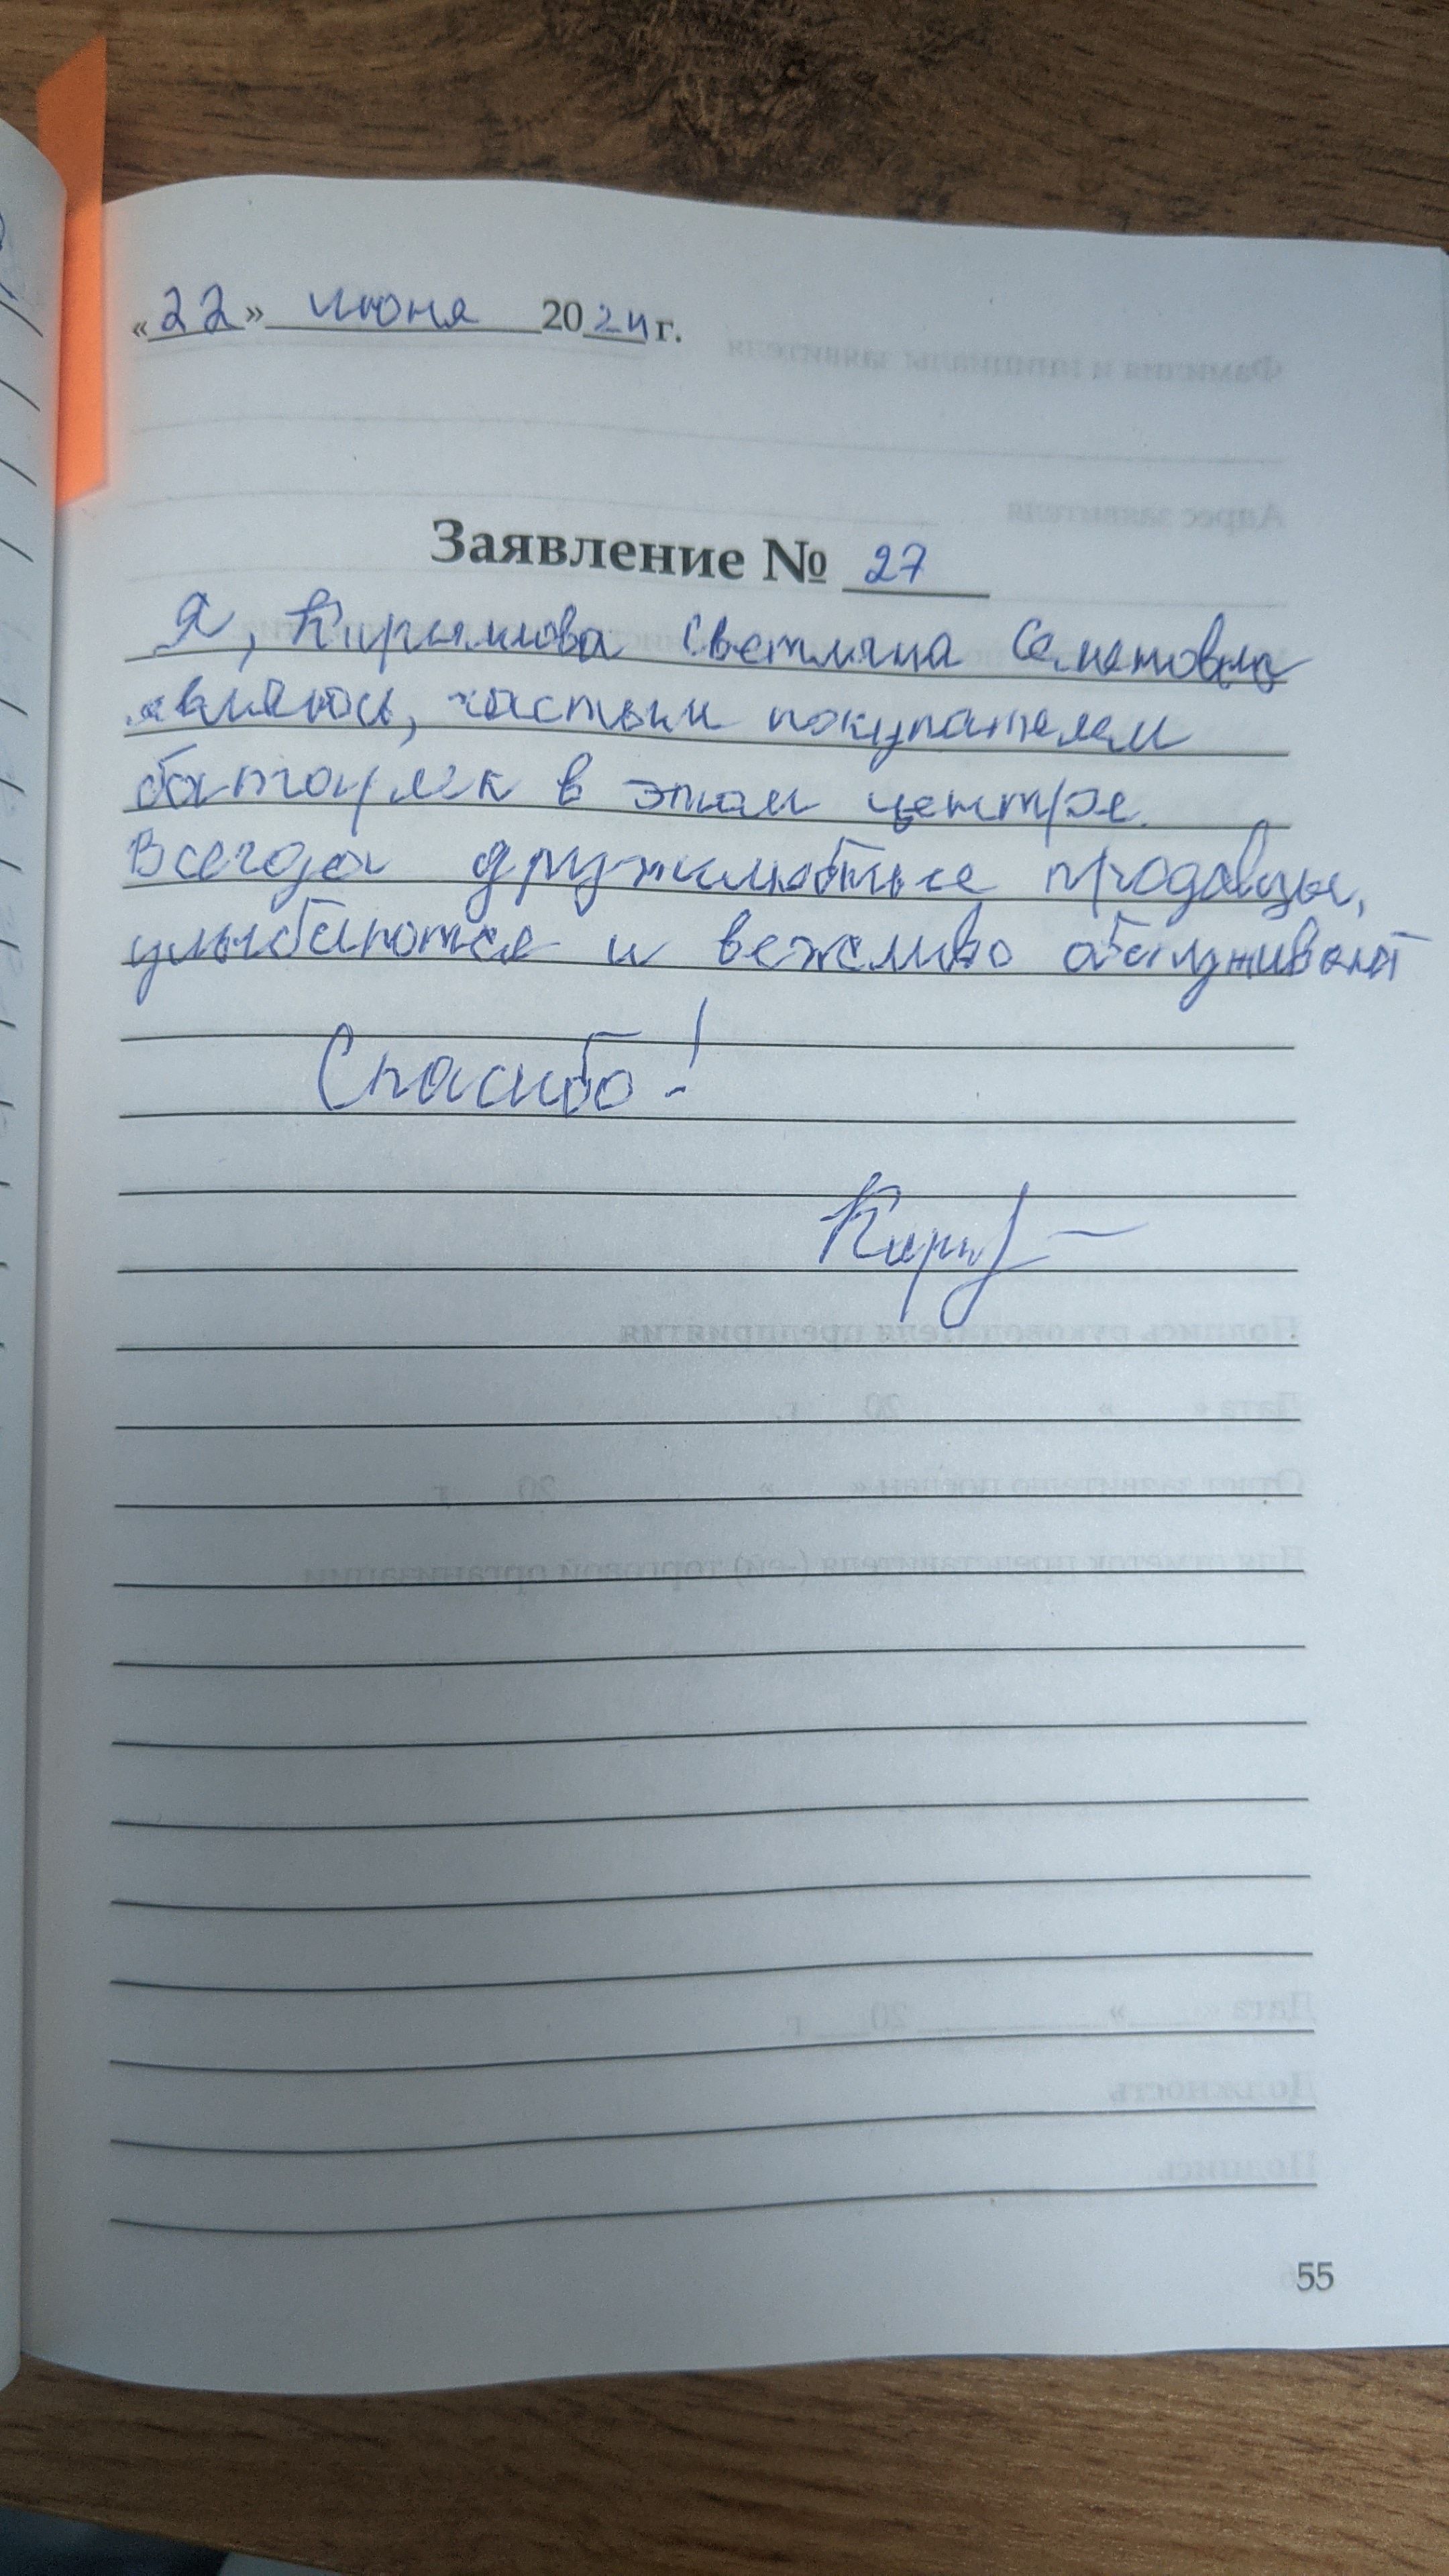 «22» июня 2024 г.
Заявление № 27
Я, Светлана Семеновна
являюсь, частым покупателем
в этом центре.
Всегда дружелюбные продавцы,
улыбаются и вежливо обслуживают
Спасибо!
55